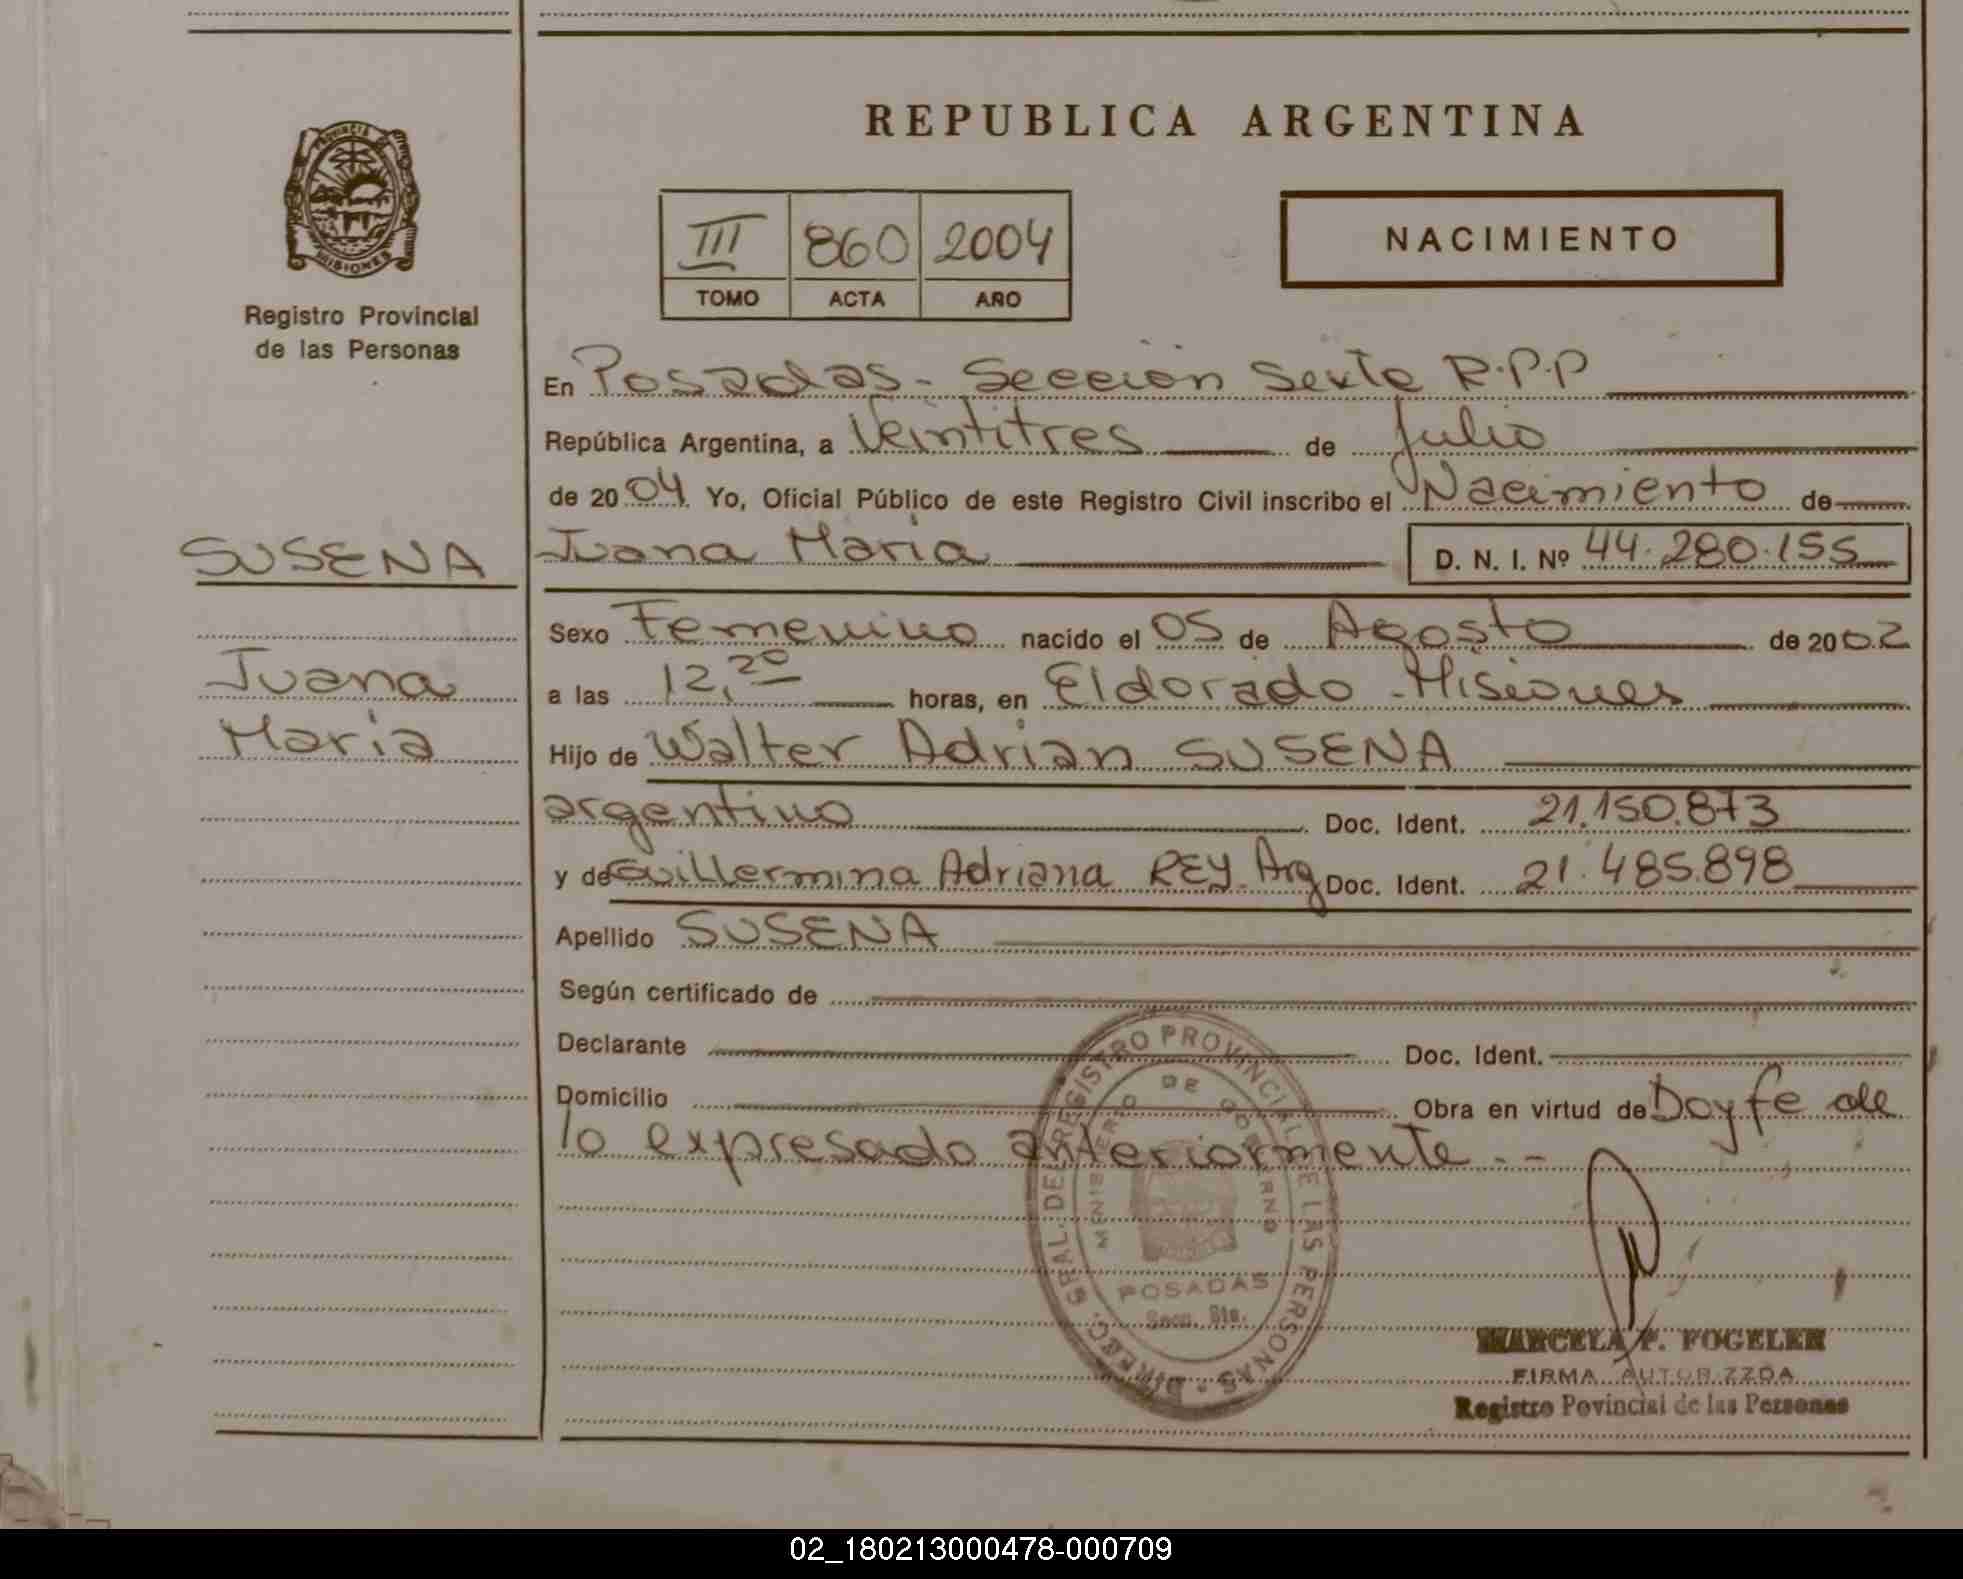 REPUBLICA ARGENTINA
PROVINCIA DE
MISIONES
Registro Provincial
de las Personas
III 860 2004
TOMO ACTA AÑO
NACIMIENTO
En Posadas - Sección Sexta R.P.P
República Argentina, a Veintitres de Julio
de 2004 Yo, Oficial Público de este Registro Civil inscribo el Nacimiento de
SUSENA
Juana María D. N. I. Nº 44.280.155
Sexo Femenino nacido el 05 de Agosto de 2002
Juana
a las 12,20 horas, en Eldorado - Misiones
María
Hijo de Walter Adrián SUSENA
argentino Doc. Ident. 21.150.873
y de Guillermina Adriana REY. Arg Doc. Ident. 21.485.898
Apellido SUSENA
Según certificado de
Declarante Doc. Ident.
Domicilio Obra en virtud de Doy fe de
lo expresado anteriormente.--
DIREC. GRAL. DEL REGISTRO PROVINCIAL DE LAS PERSONAS
MINISTERIO DE GOBIERNO
POSADAS
Secc. 6ta.
MARCELA F. FOGELER
FIRMA AUTORIZZDA
Registro Povincial de las Personas
02_180213000478-000709